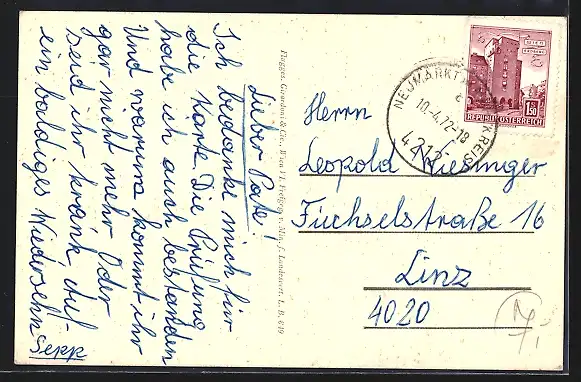 Lieber Pate!
Ich bedanke mich für
die Karte. Die Prüfung
habe ich auch bestanden
Und warum kommt ihr
gar nicht mehr. Oder
seid ihr krank, auf
ein baldiges Wiedersehn
Sepp
Flugges. Girardoni & Cie., Wien VI. Freigeg. v. Min. f. Landesvert. L. B. 619
WIEN
ERDBERG
1.50
REPUBLIK ÖSTERREICH
NEUMARKT
KREIS
10.-4.72-18
4212
Herrn
Leopold Wiesinger
Füchselstraße 16
Linz
4020
7,-